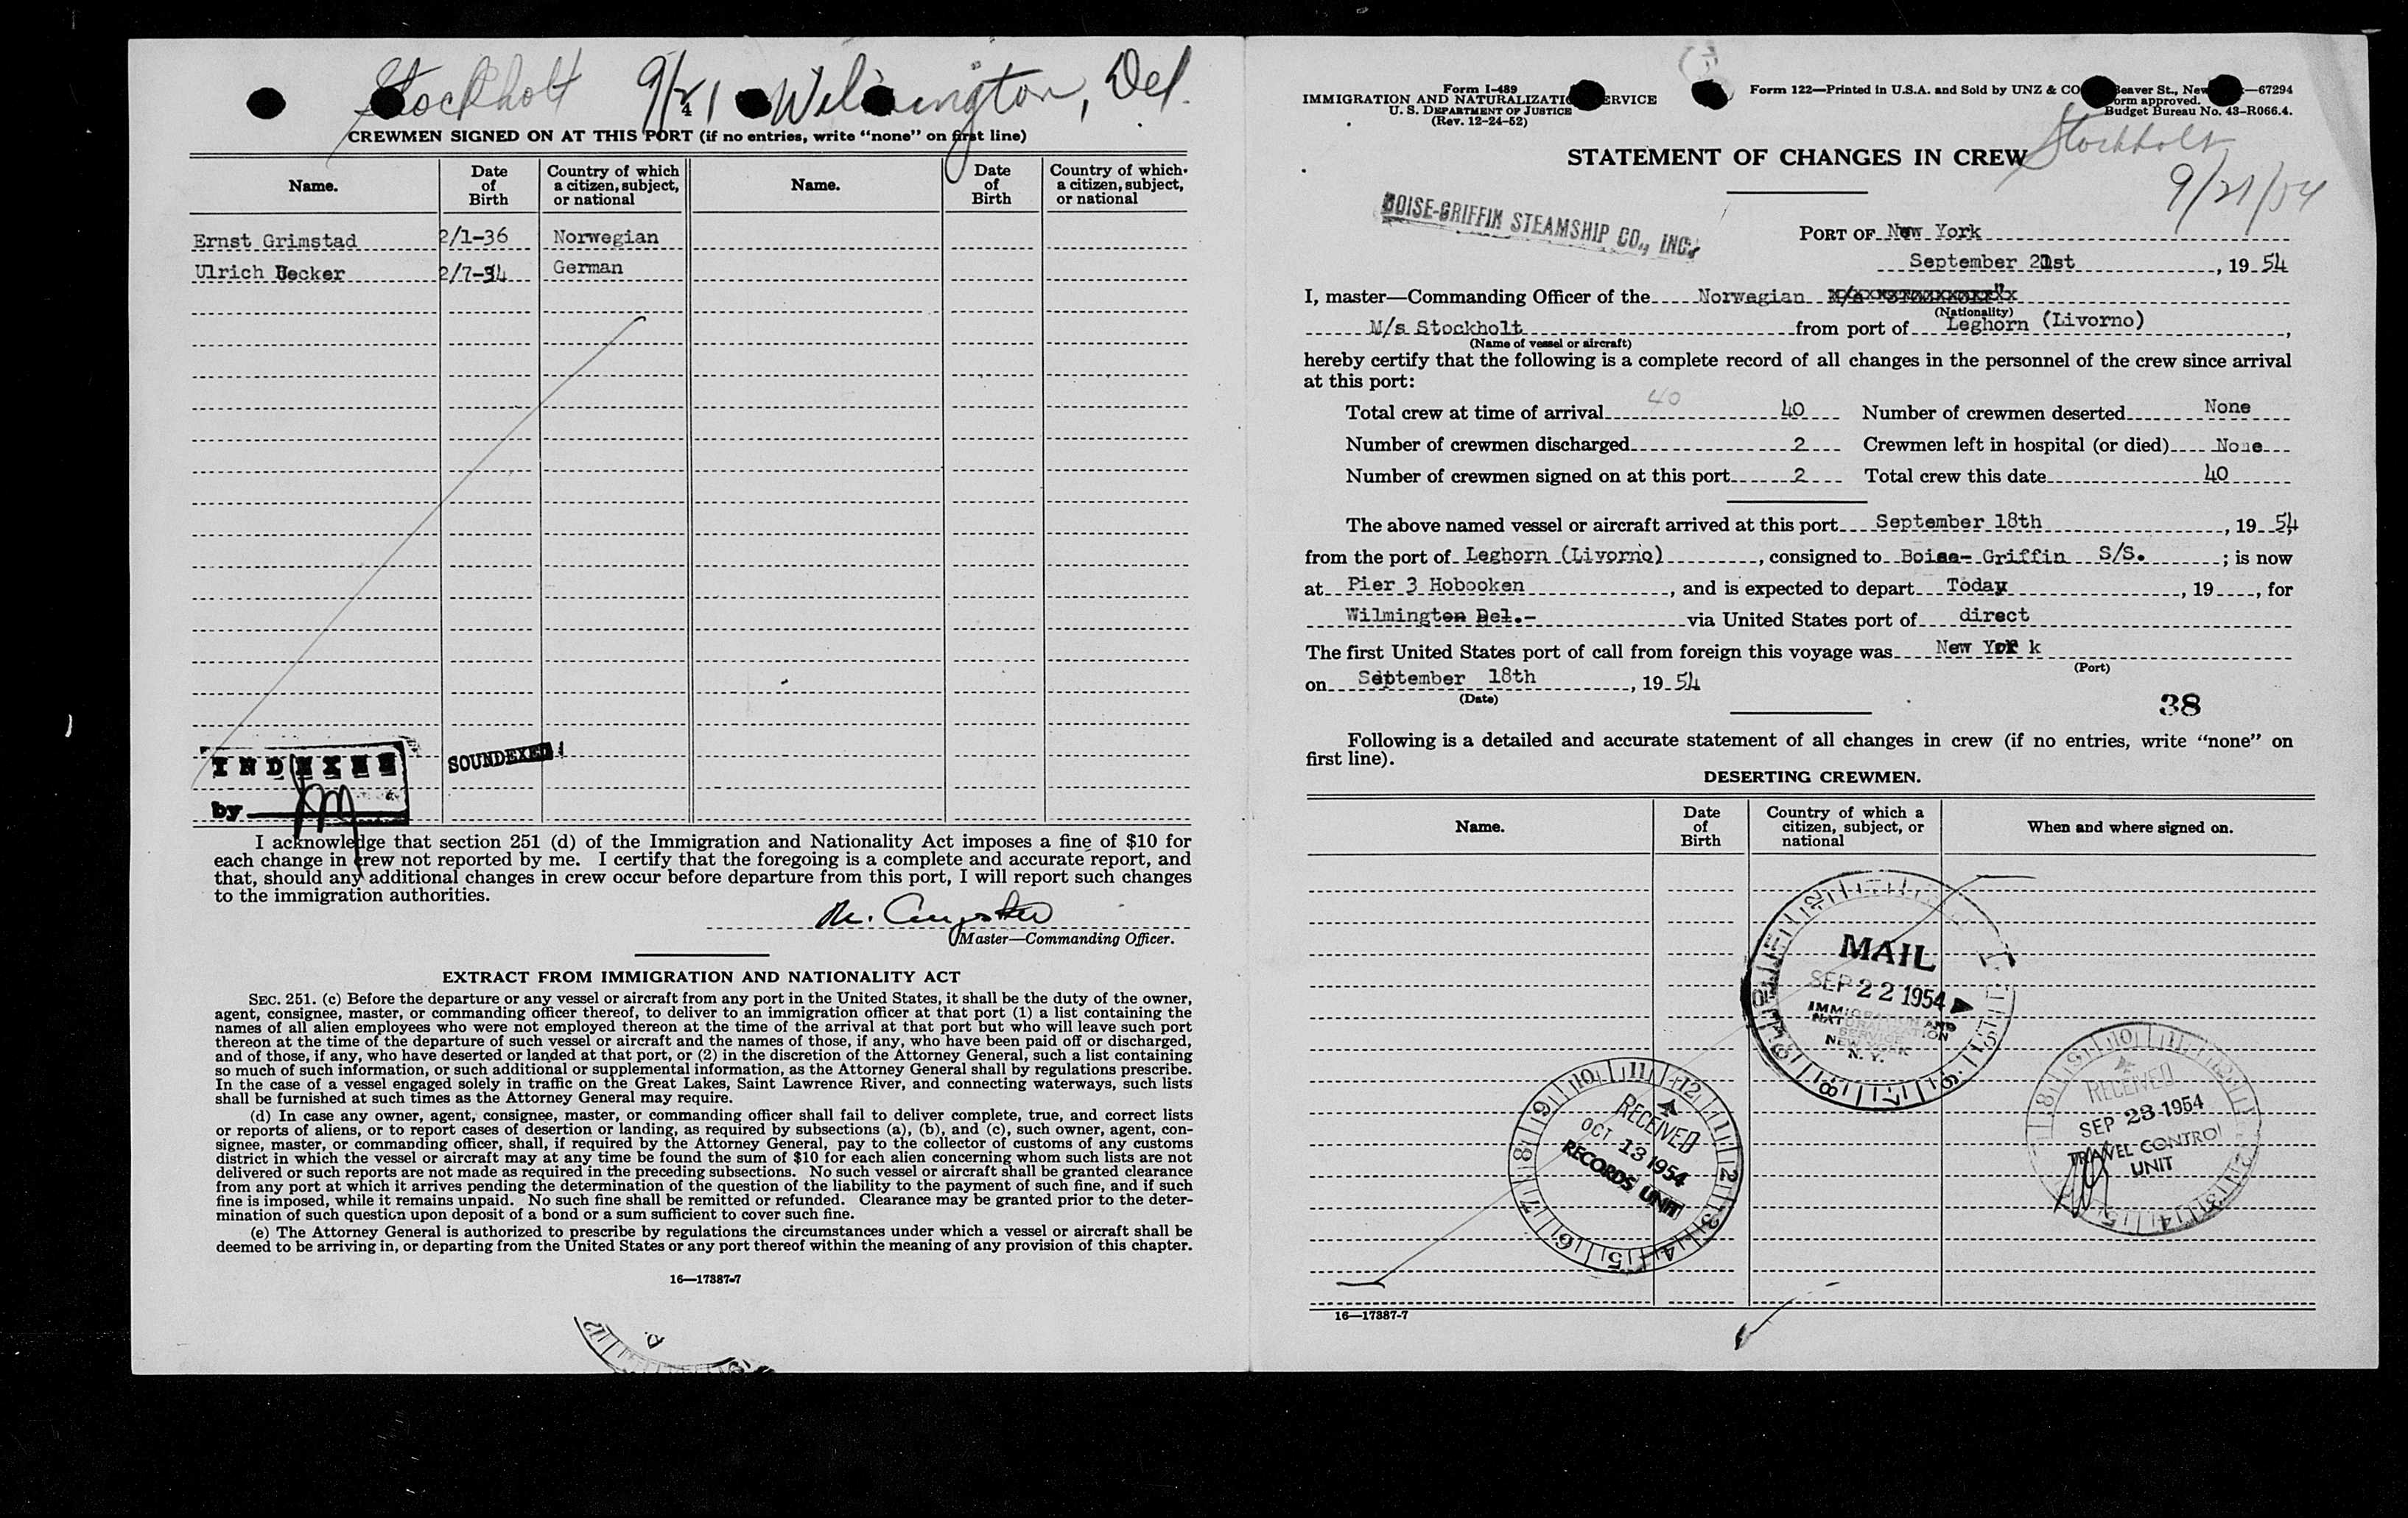 Stockholt 9/21 Wilmington, Del.
4
CREWMEN SIGNED ON AT THIS PORT (if no entries, write “none” on first line)
Name. Date of Birth Country of which a citizen, subject, or national Name. Date of Birth Country of which a citizen, subject, or national
Ernst Grimstad 2/1-36 Norwegian
Ulrich Becker 2/7-34 German
INDEXED
by
SOUNDEXED
I acknowledge that section 251 (d) of the Immigration and Nationality Act imposes a fine of $10 for
each change in crew not reported by me. I certify that the foregoing is a complete and accurate report, and
that, should any additional changes in crew occur before departure from this port, I will report such changes
to the immigration authorities.
Master—Commanding Officer.
EXTRACT FROM IMMIGRATION AND NATIONALITY ACT
SEC. 251. (c) Before the departure or any vessel or aircraft from any port in the United States, it shall be the duty of the owner,
agent, consignee, master, or commanding officer thereof, to deliver to an immigration officer at that port (1) a list containing the
names of all alien employees who were not employed thereon at the time of the arrival at that port but who will leave such port
thereon at the time of the departure of such vessel or aircraft and the names of those, if any, who have been paid off or discharged,
and of those, if any, who have deserted or landed at that port, or (2) in the discretion of the Attorney General, such a list containing
so much of such information, or such additional or supplemental information, as the Attorney General shall by regulations prescribe.
In the case of a vessel engaged solely in traffic on the Great Lakes, Saint Lawrence River, and connecting waterways, such lists
shall be furnished at such times as the Attorney General may require.
(d) In case any owner, agent, consignee, master, or commanding officer shall fail to deliver complete, true, and correct lists
or reports of aliens, or to report cases of desertion or landing, as required by subsections (a), (b), and (c), such owner, agent, con-
signee, master, or commanding officer, shall, if required by the Attorney General, pay to the collector of customs of any customs
district in which the vessel or aircraft may at any time be found the sum of $10 for each alien concerning whom such lists are not
delivered or such reports are not made as required in the preceding subsections. No such vessel or aircraft shall be granted clearance
from any port at which it arrives pending the determination of the question of the liability to the payment of such fine, and if such
fine is imposed, while it remains unpaid. No such fine shall be remitted or refunded. Clearance may be granted prior to the deter-
mination of such question upon deposit of a bond or a sum sufficient to cover such fine.
(e) The Attorney General is authorized to prescribe by regulations the circumstances under which a vessel or aircraft shall be
deemed to be arriving in, or departing from the United States or any port thereof within the meaning of any provision of this chapter.
16—17387-7
Form I-489
IMMIGRATION AND NATURALIZATION SERVICE
U. S. DEPARTMENT OF JUSTICE
(Rev. 12-24-52)
Form 122—Printed in U.S.A. and Sold by UNZ & CO Beaver St., New —67294
Form approved.
Budget Bureau No. 43-R066.4.
Stockholt
9/21/54
STATEMENT OF CHANGES IN CREW
BOISE-GRIFFIN STEAMSHIP CO., INC.
PORT OF New York
September 21st, 19 54
I, master—Commanding Officer of the Norwegian
(Nationality)
M/s Stockholt from port of Leghorn (Livorno),
(Name of vessel or aircraft)
hereby certify that the following is a complete record of all changes in the personnel of the crew since arrival
at this port:
40
Total crew at time of arrival 40 Number of crewmen deserted None
Number of crewmen discharged 2 Crewmen left in hospital (or died) None
Number of crewmen signed on at this port 2 Total crew this date 40
The above named vessel or aircraft arrived at this port September 18th, 19 54
from the port of Leghorn (Livorno), consigned to Boise- Griffin S/S.; is now
at Pier 3 Hobooken, and is expected to depart Today, 19 , for
Wilmington Del.- via United States port of direct
The first United States port of call from foreign this voyage was New York
(Port)
on September 18th, 19 54
(Date)
38
Following is a detailed and accurate statement of all changes in crew (if no entries, write “none” on
first line).
DESERTING CREWMEN.
Name. Date of Birth Country of which a citizen, subject, or national When and where signed on.
MAIL
SEP 22 1954
IMMIGRATION AND
NATURALIZATION
SERVICE
NEW YORK
N. Y.
RECEIVED
OCT 13 1954
RECORDS UNIT
RECEIVED
SEP 23 1954
TRAVEL CONTROL
UNIT
16—17387-7